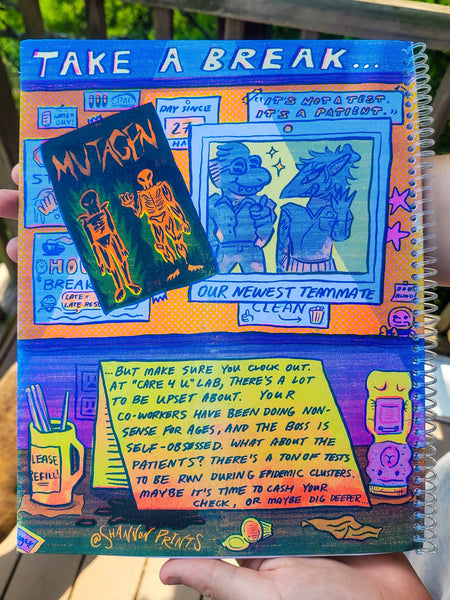 TAKE A BREAK...
WATER
GUY!
DAY SINCE
27
HA
"IT'S NOT A TEST,
IT'S A PATIENT."
MUTAGEN
HOU
BREAK
LATE =
LATE RES
OUR NEWEST TEAMMATE
CLEAN
...BUT MAKE SURE YOU CLOCK OUT.
AT "CARE 4 U" LAB, THERE'S A LOT
TO BE UPSET ABOUT. YOUR
CO-WORKERS HAVE BEEN DOING NON-
SENSE FOR AGES, AND THE BOSS IS
SELF-OBSESSED. WHAT ABOUT THE
PATIENTS? THERE'S A TON OF TESTS
TO BE RUN DURING EPIDEMIC CLUSTERS.
MAYBE IT'S TIME TO CASH YOUR
CHECK, OR MAYBE DIG DEEPER.
LEASE
REFILL!
@SHANNON PRINTS